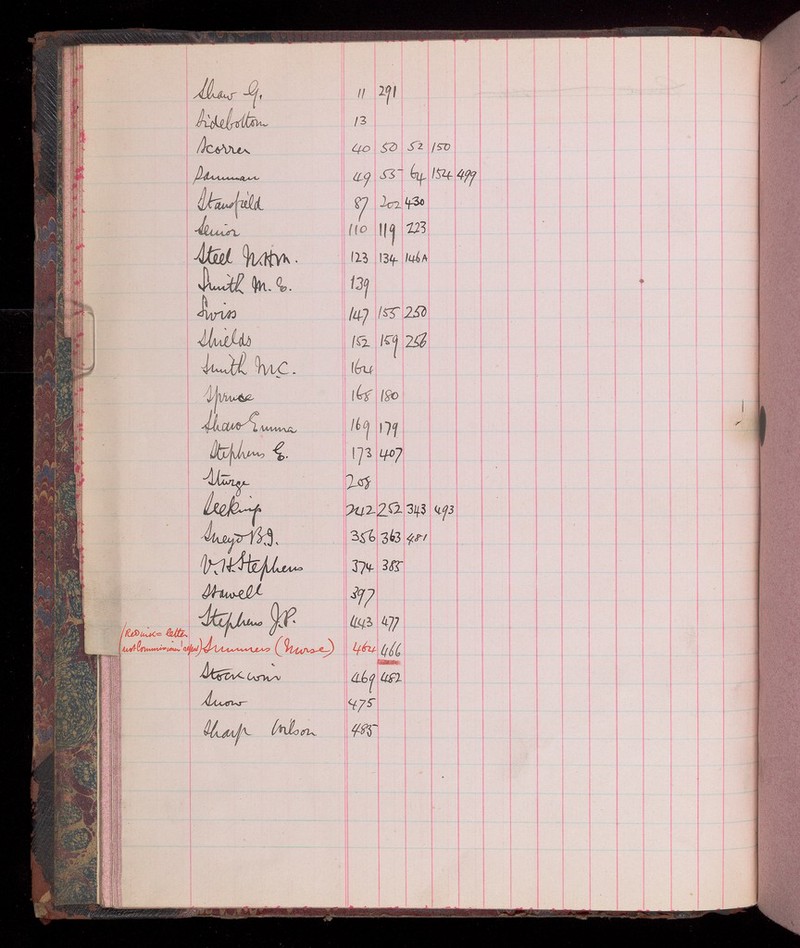 Shaw G. 11 291
Sidebottom 13
Scorrer 40 50 52 150
49 55 64 154 499
Stansfield 87 202 430
Senior 110 119 223
Steel 123 134 146A
Smith M. E. 139
Swiss 147 155 250
Shields 152 159 256
Smith W.C. 164
Spruce 168 180
Shaw Emma 169 179
Stephens E. 173 407
Sturge 208
Seekings 242 252 343 493
Sneyd B.J. 356 363 481
V. H. Stephens 374 385
Stowell 397
Stephens J.P. 443 477
(Red ink = letter
not Commissions' report) Summers (Nurse) 464 466
Stock 469 482
Snow 475
Sharp Wilson 485